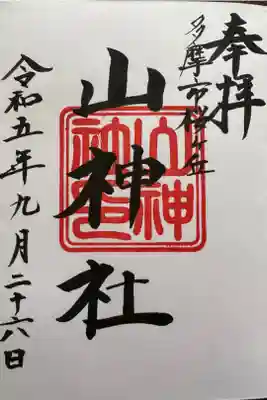 奉拝
多摩市桜ヶ丘
山神社
山神社印
令和五年九月二十六日